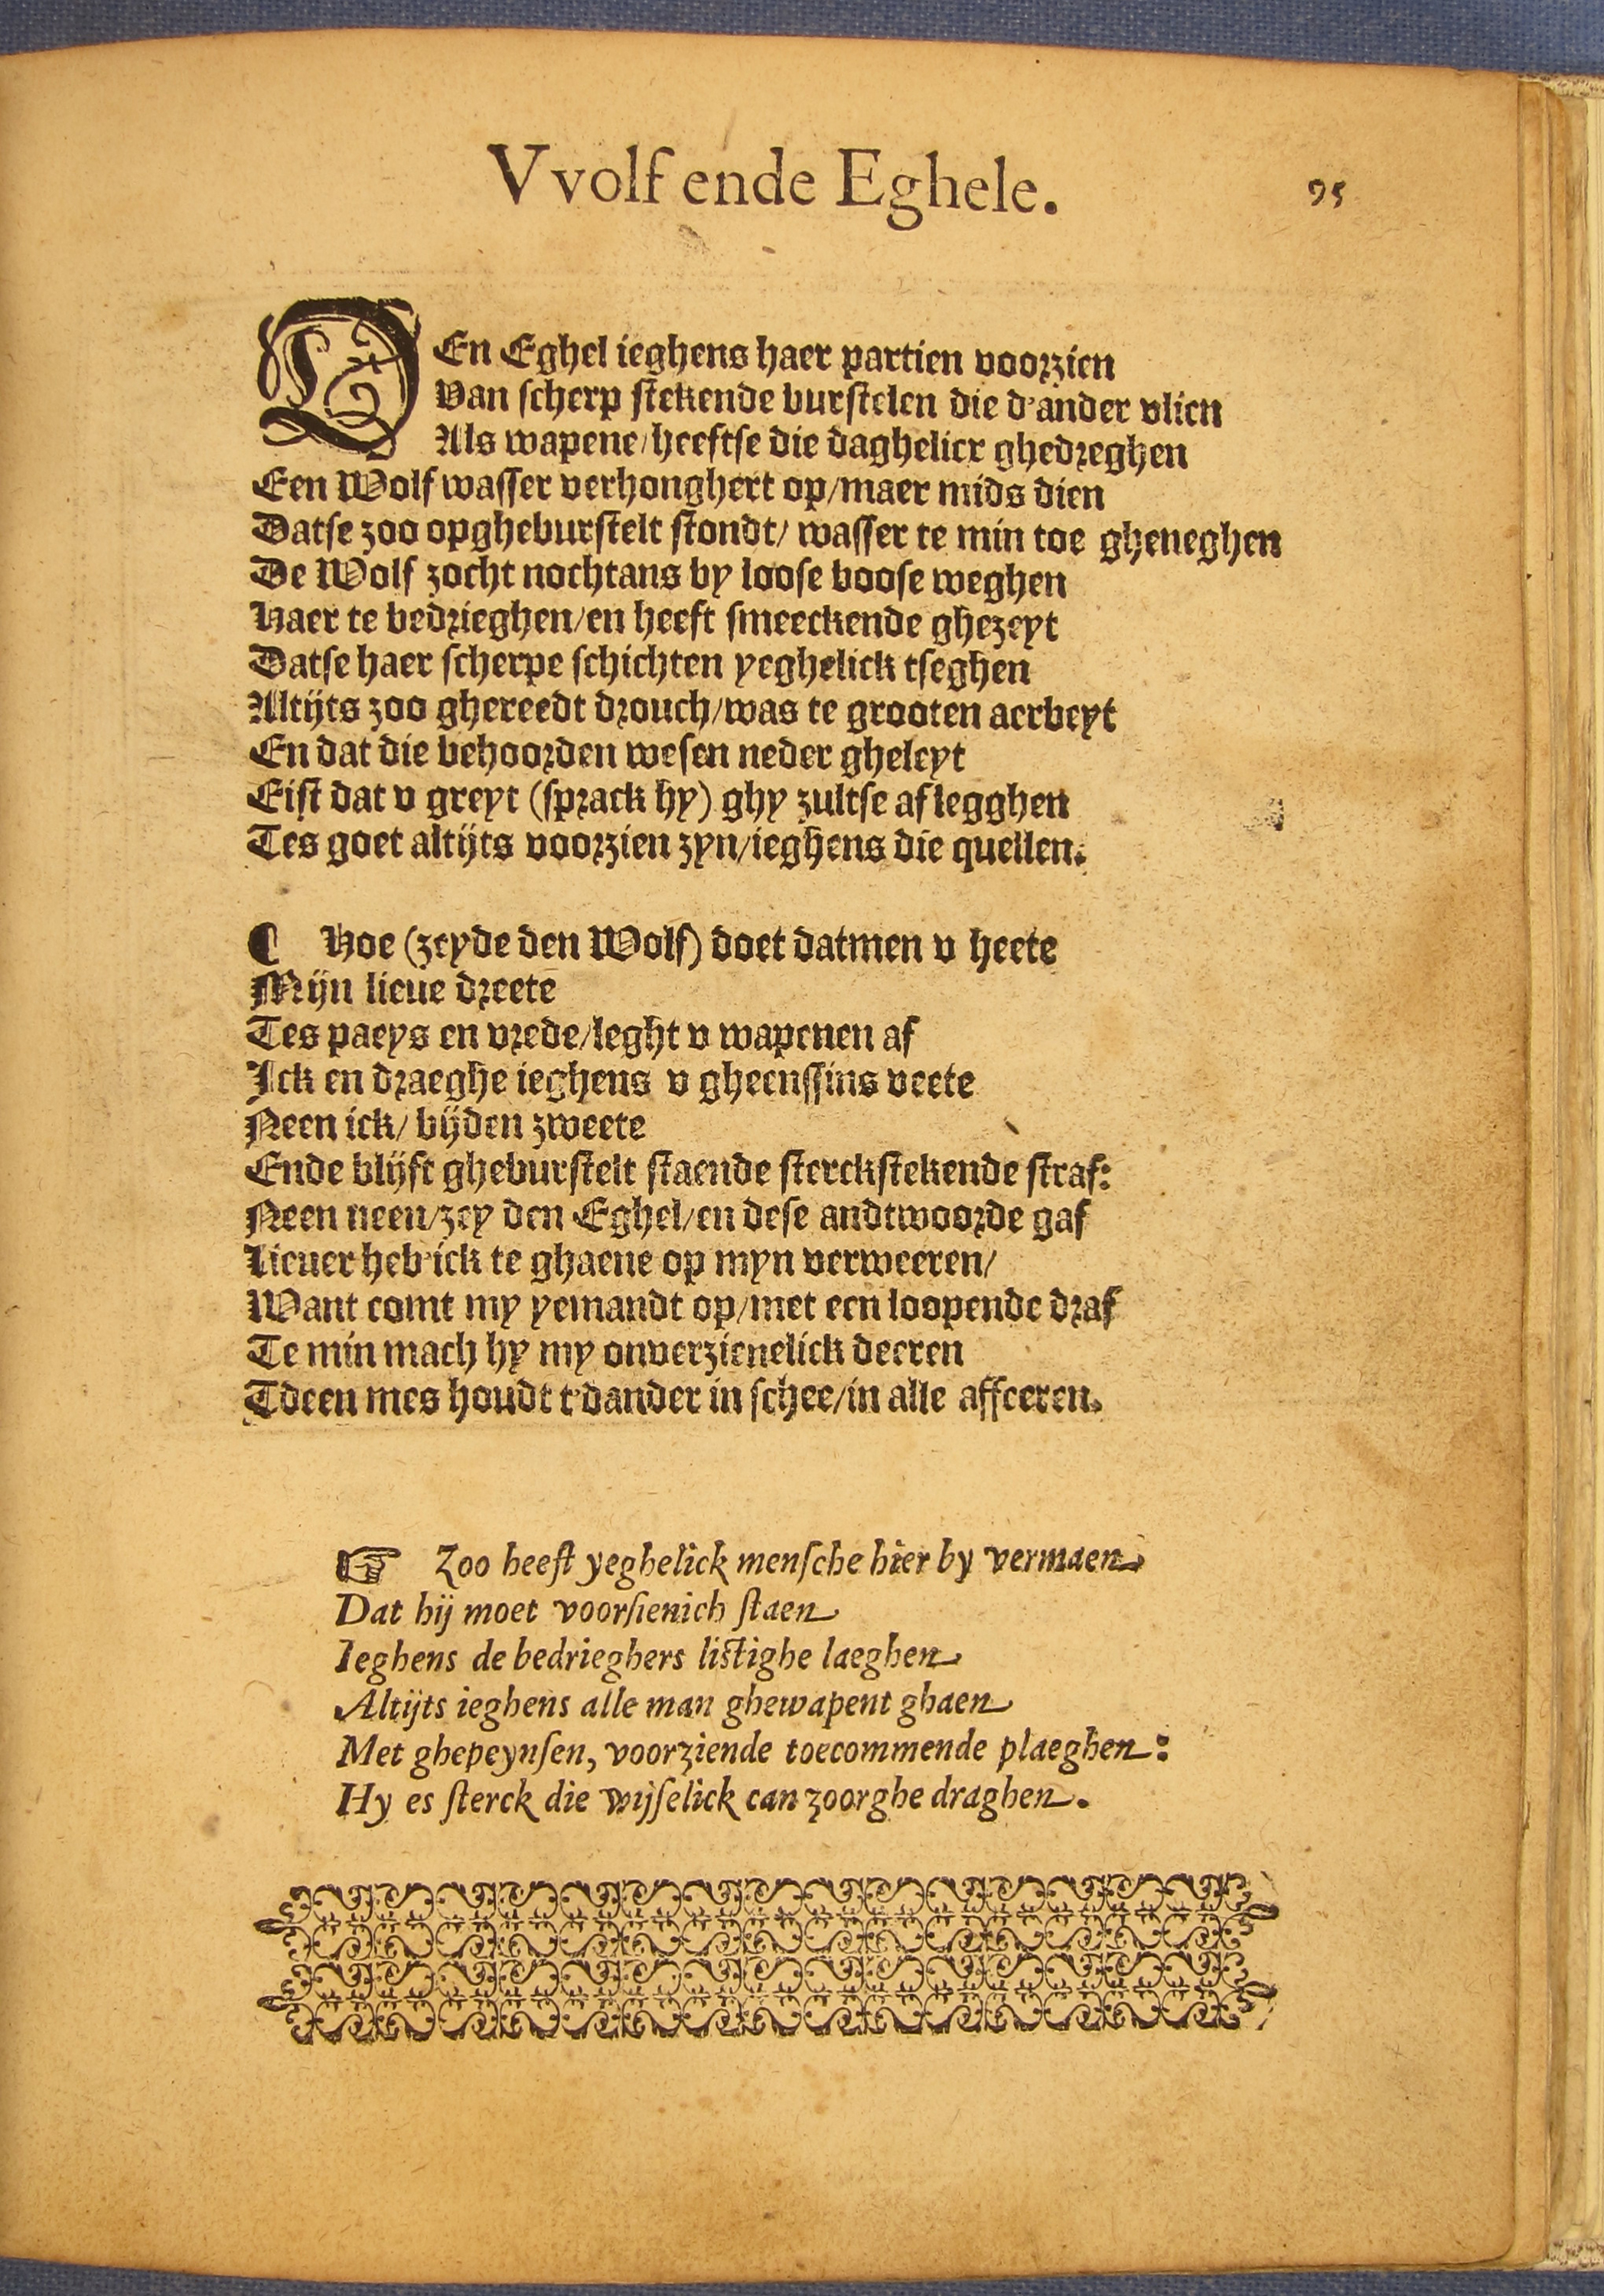 Vvolf ende Eghele.
95
DEn Eghel ieghens haer partien voorzien
Van scherp stekende burstelen die d'ander vlien
Als wapene/heeftse die daghelicx ghedreghen
Een Wolf wasser verhonghert op/maer mids dien
Datse zoo opgheburstelt stondt/ wasser te min toe gheneghen
De Wolf zocht nochtans by loose boose weghen
Haer te bedrieghen/en heeft smeeckende ghezeyt
Datse haer scherpe schichten yeghelick tseghen
Altijts zoo ghereedt drouch/was te grooten aerbeyt
En dat die behoorden wesen neder gheleyt
Eist dat v greyt (sprack hy) ghy zultse af legghen
Tes goet altijts voorzien zyn/ieghens die quellen.
¶ Hoe (zeyde den Wolf) doet datmen v heete
Mijn lieue dreete
Tes paeys en vrede/leght v wapenen af
Ick en draeghe ieghens v gheenssins veete
Neen ick/ bijden zweete
Ende blijft gheburstelt staende sterckstekende straf:
Neen neen/zey den Eghel/en dese andtwoorde gaf
Lieuer heb'ick te ghaene op myn verweeren/
Want comt my yemandt op/met een loopende draf
Te min mach hy my onverzienelick deeren
Tdeen mes houdt t'dander in schee/in alle affceren.
☞ Zoo heeft yeghelick mensche hier by vermaen
Dat hij moet voorsienich staen
Ieghens de bedrieghers listighe laeghen
Altijts ieghens alle man ghewapent ghaen
Met ghepeynsen, voorziende toecommende plaeghen:
Hy es sterck die wijselick can zoorghe draghen.